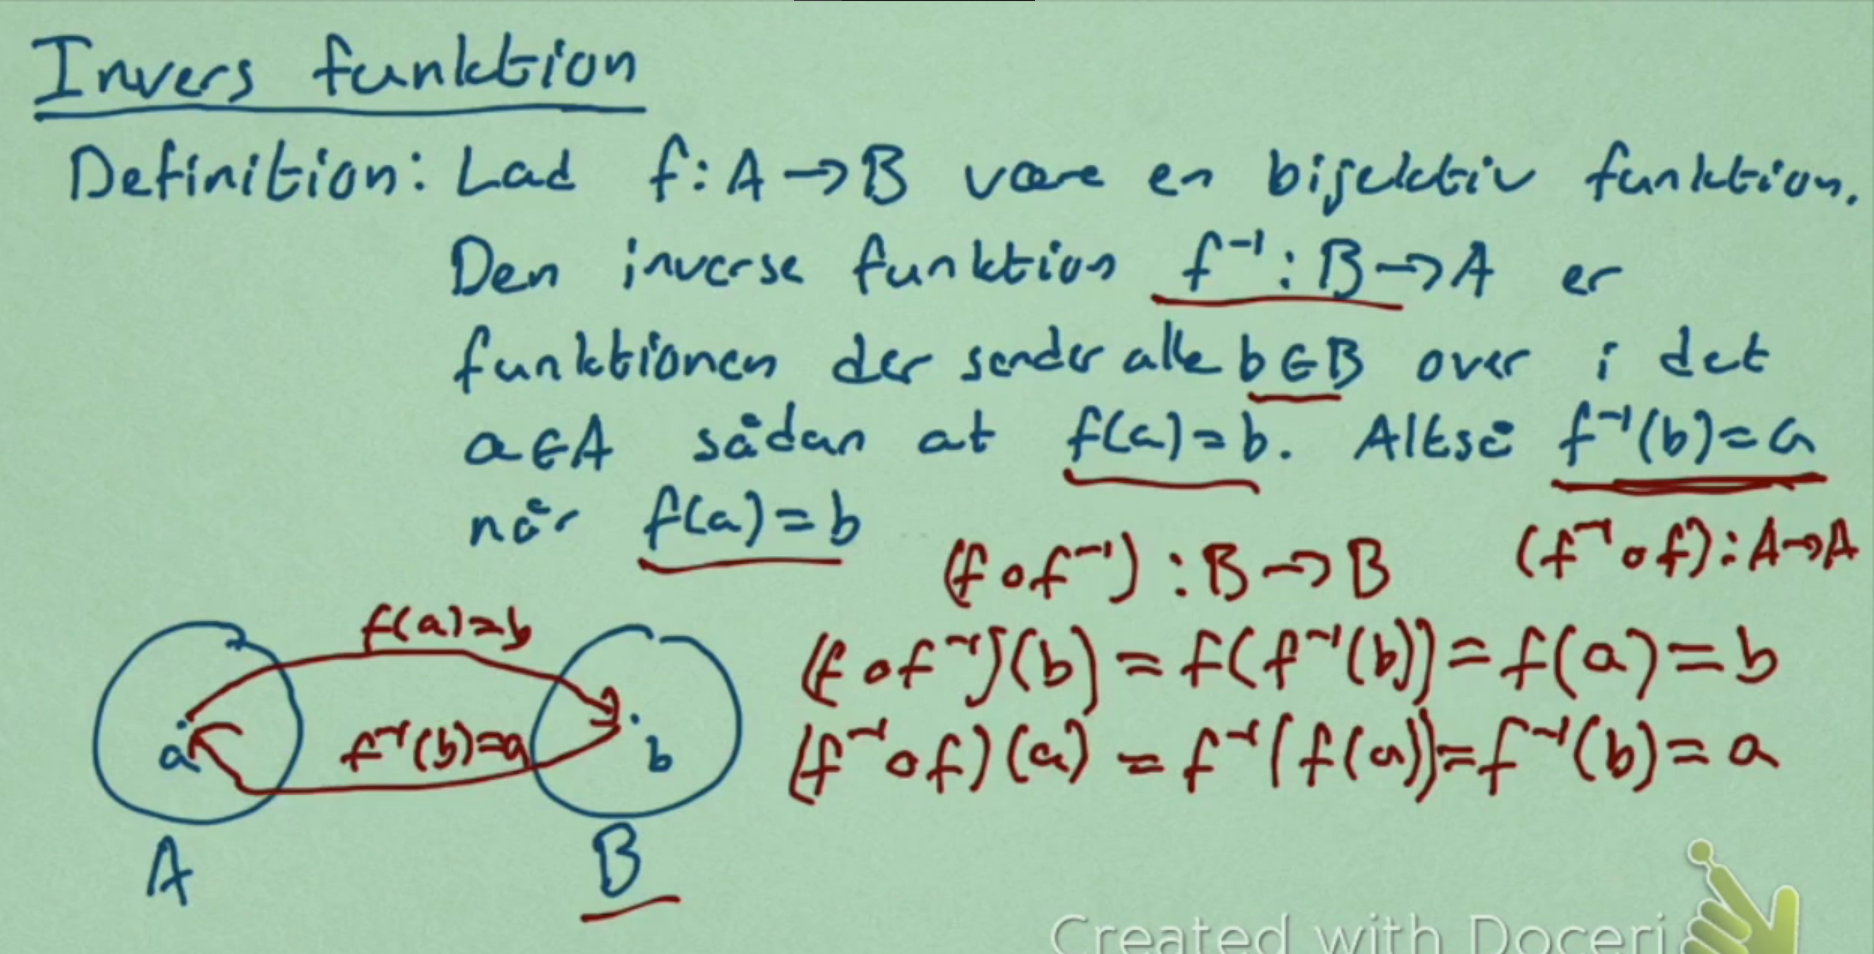 Invers funktion
Definition: Lad f: A → B være en bijektiv funktion.
Den inverse funktion f⁻¹: B → A er
funktionen der sender alle b∈B over i det
a∈A sådan at f(a)=b. Altså f⁻¹(b)=a
når f(a)=b
(f∘f⁻¹): B → B
(f⁻¹∘f): A→A
f(a)=b
(f∘f⁻¹)(b) = f(f⁻¹(b)) = f(a) = b
a
f⁻¹(b)=a
b
(f⁻¹∘f)(a) = f⁻¹(f(a)) = f⁻¹(b) = a
A
B
Created with Doceri